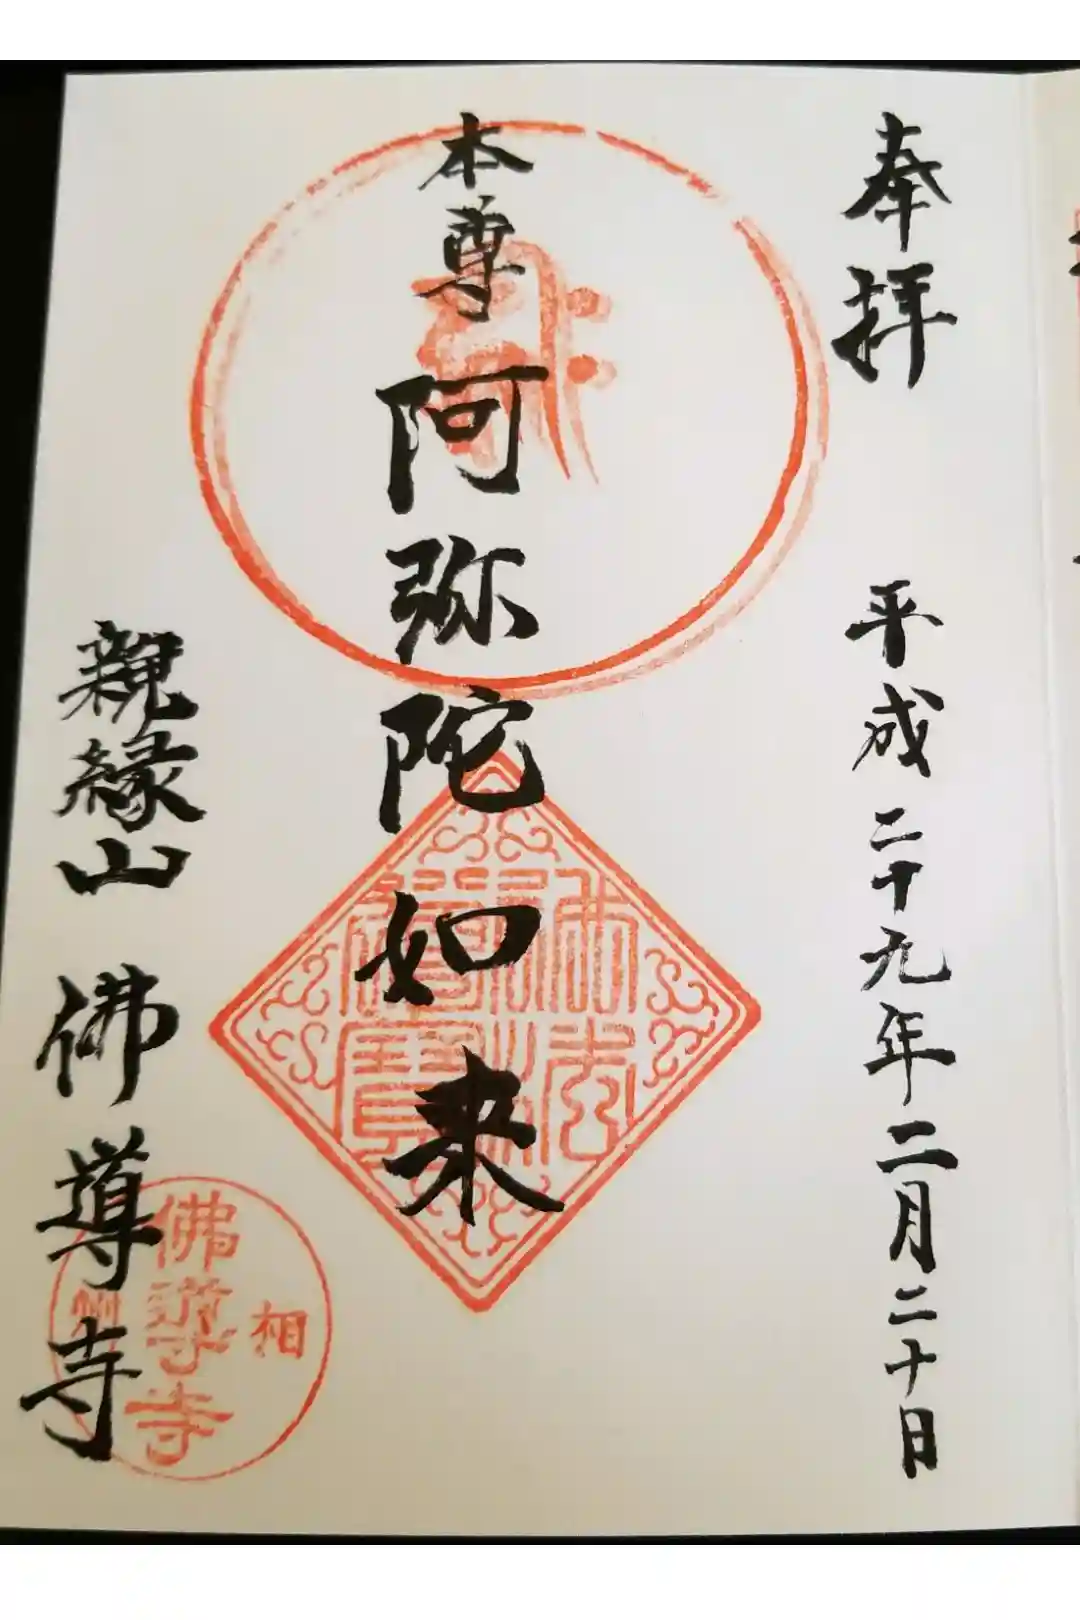 奉拝
平成二十九年二月二十日
本尊 阿弥陀如来
親縁山 佛導寺
佛法僧寶
相州
佛導寺